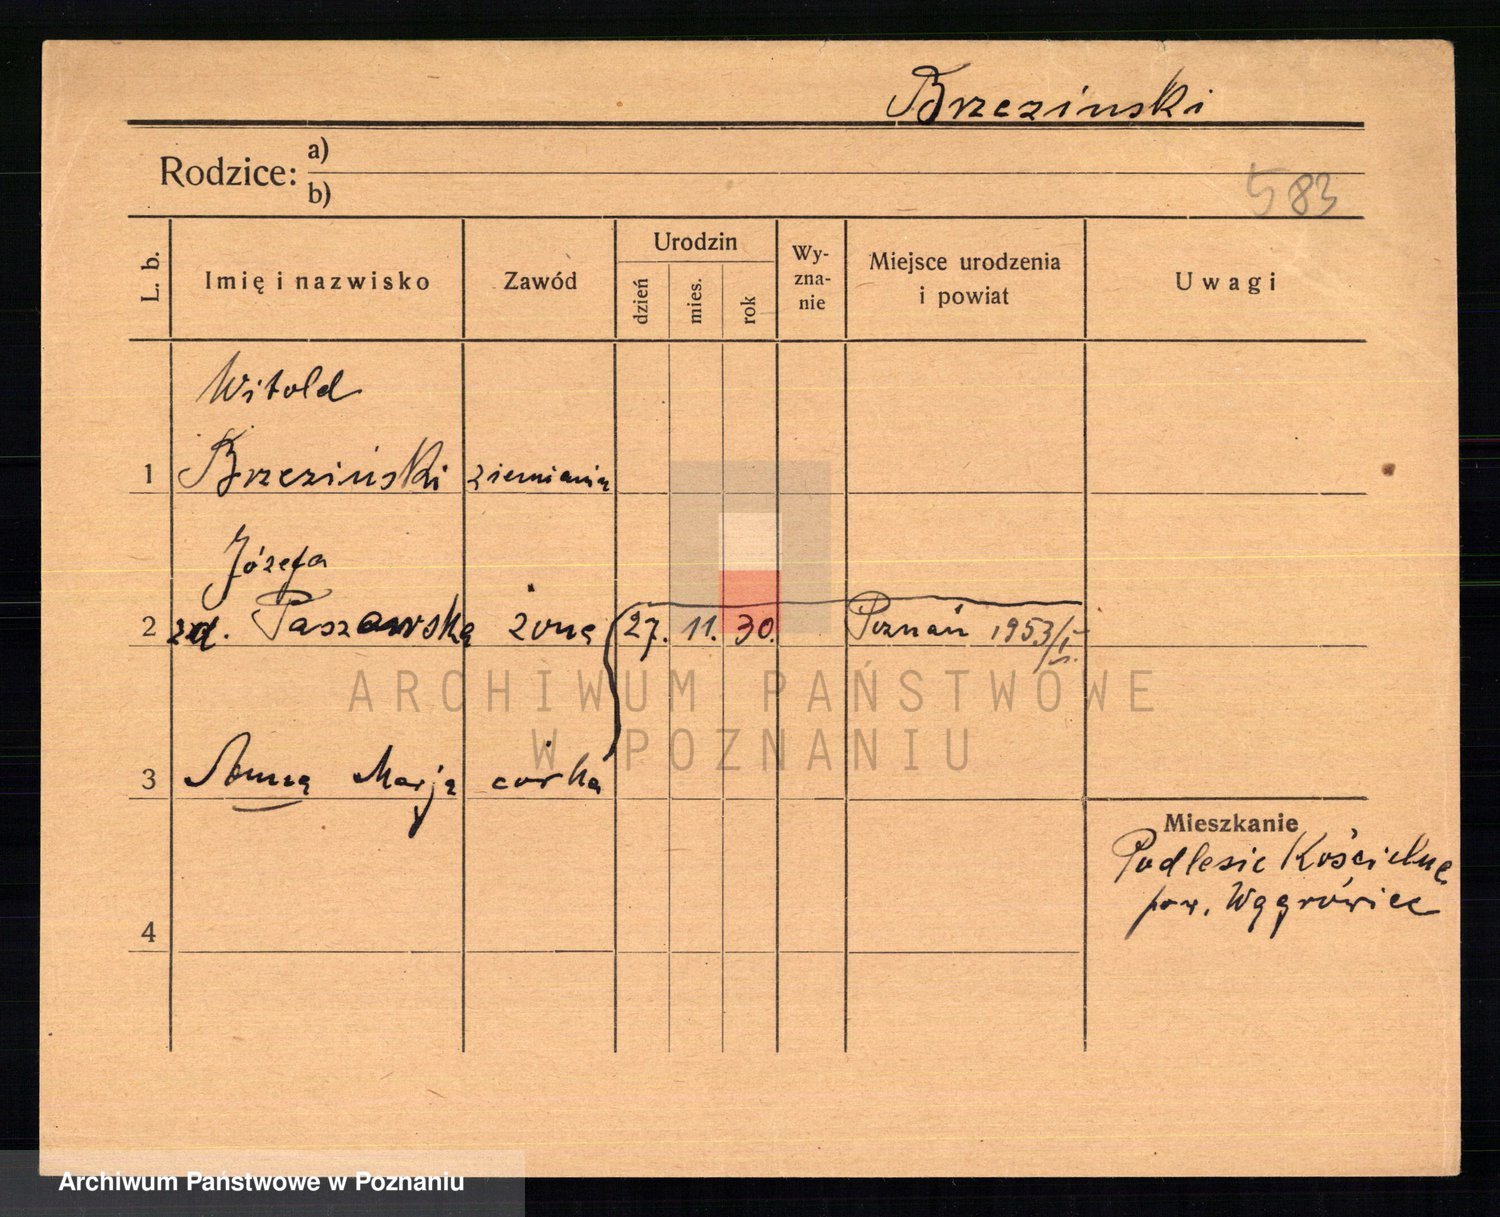 Brzezinski
Rodzice: a)
b)
583
L. b.
Imię i nazwisko
Zawód
Urodzin
dzień
mies.
rok
Wy-
zna-
nie
Miejsce urodzenia
i powiat
Uwagi
Witold
1 Brzeziński ziemianin
Józefa
2 zd. Paszawska żona 27. 11. 30. Poznań 1953/I
ARCHIWUM PAŃSTWOWE
W POZNANIU
3 Anna Marja córka
Mieszkanie
Podlesie Kościelne
pow. Wągrówiec
4
Archiwum Państwowe w Poznaniu